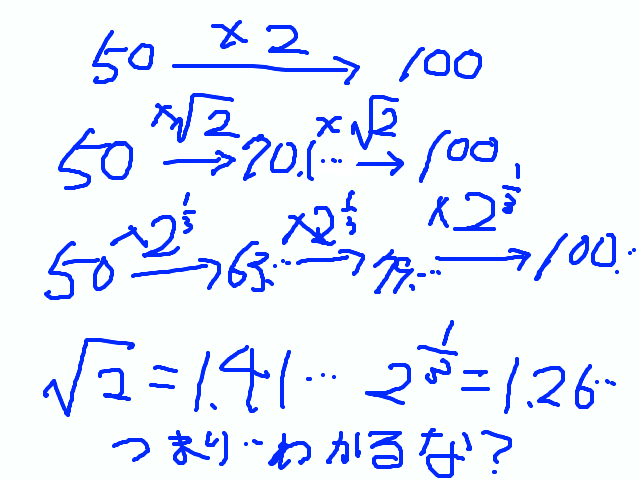 50 ×2→ 100
50 ×√2→ 70.1… ×√2→ 100
50 ×2^(1/3)→ 63.… ×2^(1/3)→ 79.… ×2^(1/3)→ 100.…
√2=1.41… 2^(1/3)=1.26…
つまり…わかるな?